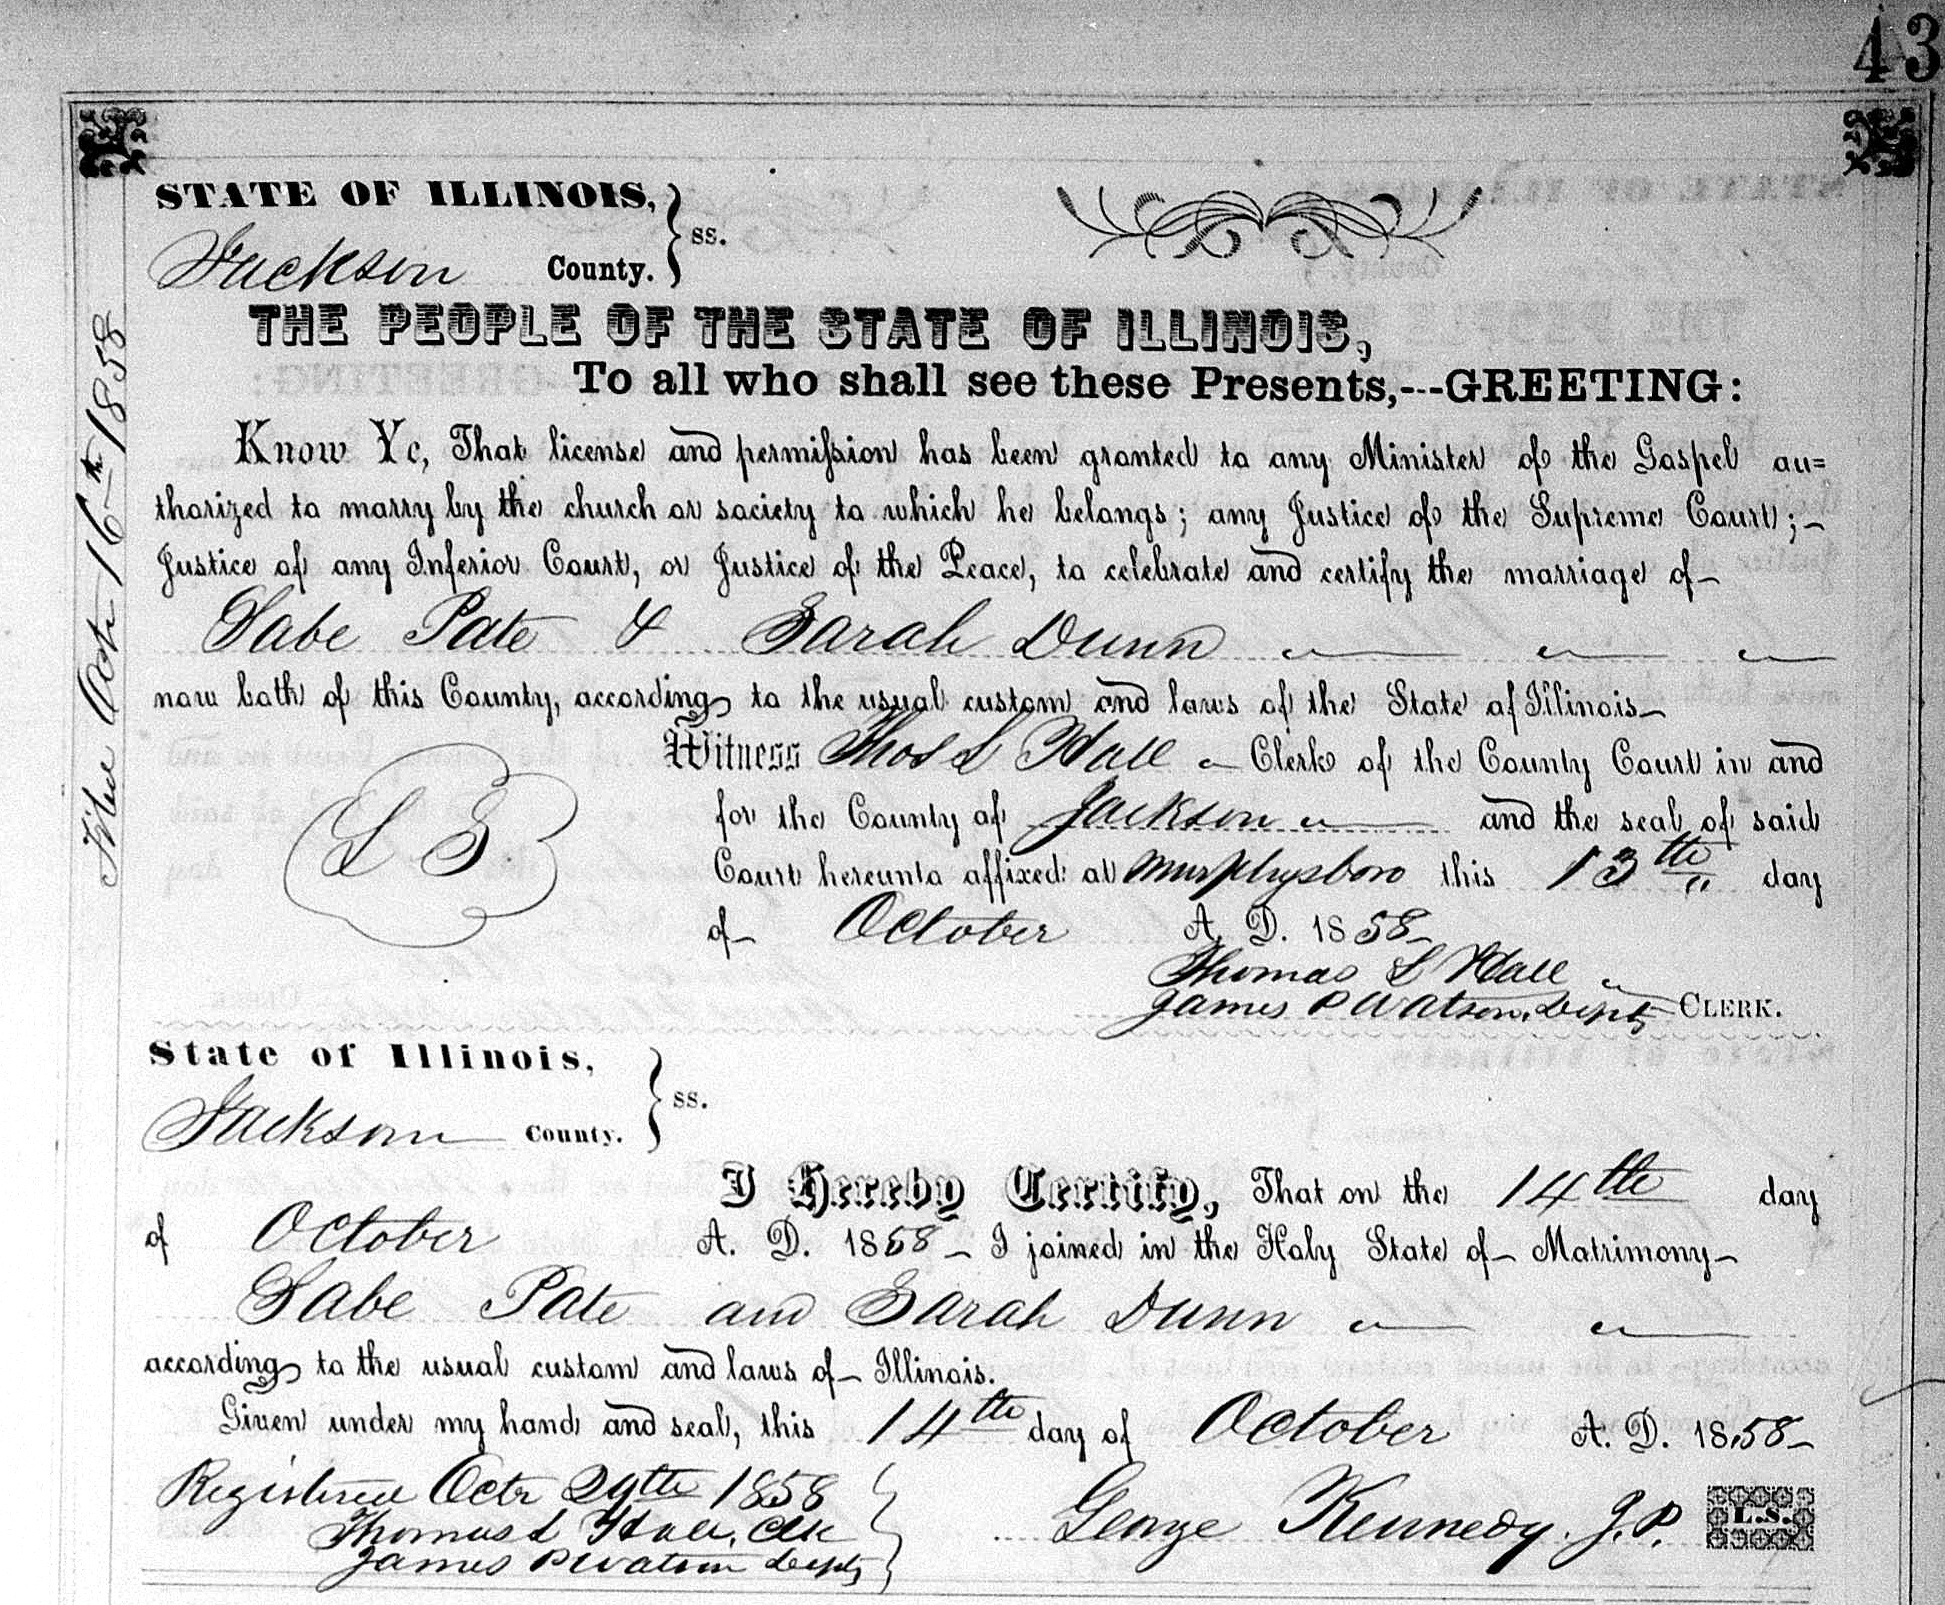 43
STATE OF ILLINOIS,
Jackson County. } ss.
THE PEOPLE OF THE STATE OF ILLINOIS,
To all who shall see these Presents,---GREETING:
Know Ye, That license and permission has been granted to any Minister of the Gospel au=
thorized to marry by the church or society to which he belongs; any Justice of the Supreme Court;
Justice of any Inferior Court, or Justice of the Peace, to celebrate and certify the marriage of
Labe Pate & Sarah Dunn
now both of this County, according to the usual custom and laws of the State of Illinois
Witness Thos L Hall Clerk of the County Court in and
for the County of Jackson and the seal of said
Court hereunto affixed at Murphysboro this 13th day
of October A. D. 1858
L S
Thomas L Hall
James P Watson, Depty CLERK.
Oct 16th 1858
State of Illinois,
Jackson County. } ss.
I Hereby Certify, That on the 14th day
of October A. D. 1858 I joined in the Holy State of Matrimony
Labe Pate and Sarah Dunn
according to the usual custom and laws of Illinois.
Given under my hand and seal, this 14th day of October A. D. 1858
Registered Octr 29th 1858
Thomas L Hall, Clk
James P Watson Depty
George Kennedy. J.P. L.S.